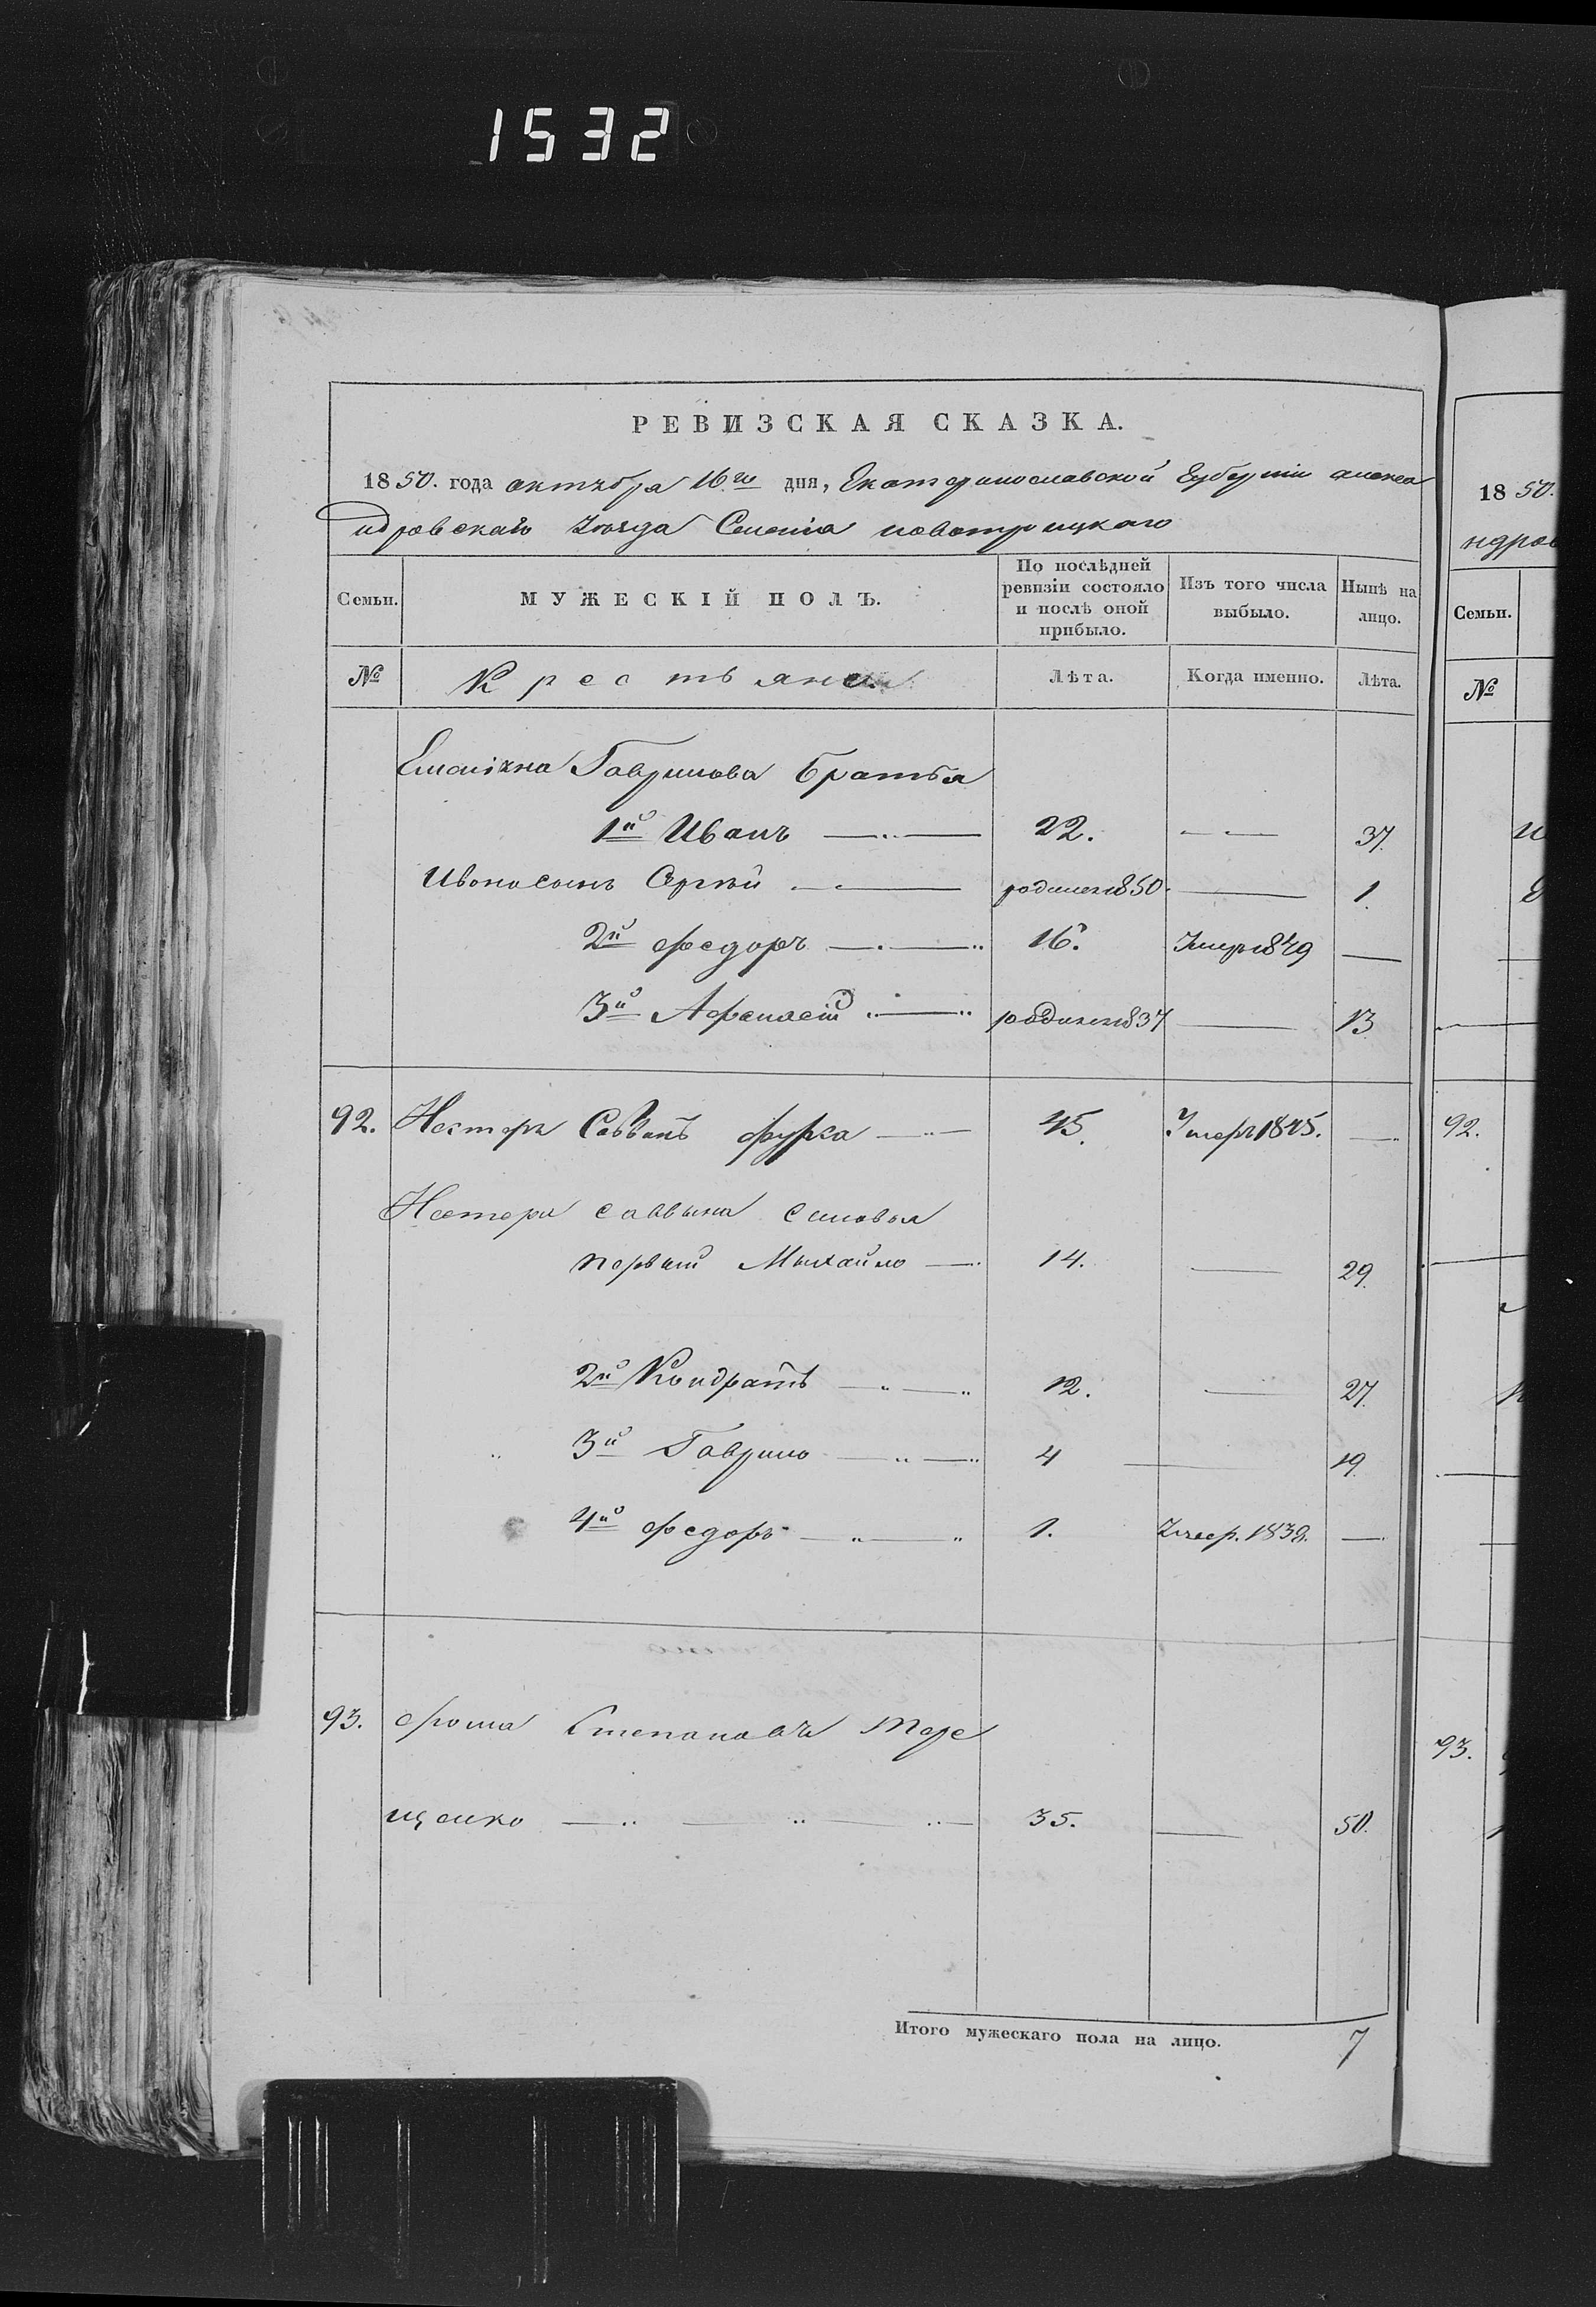 1532
РЕВИЗСКАЯ СКАЗКА.
1850. года октября 16го дня, Екатеринославской Губерніи алекса
ндровскаго Уѣзда Селенія новотроицкаго
Семьи.
МУЖЕСКІЙ ПОЛЪ.
По послѣдней ревизіи состояло и послѣ оной прибыло.
Изъ того числа выбыло.
Нынѣ на лицо.
№ Крестьяне Лѣта. Когда именно. Лѣта.
Гаврилова братья
1й Иванъ 22. 37.
Ивана сынъ Сергѣй родился 1850. 1.
2й федоръ 16. Умеръ 1849
3й Афанасій родился 1837 13
92. Несторъ Саввинъ фурса 45. Умеръ 1845.
Нестора саввина сыновья
первый Михайло 14. 29.
2й Кондратъ 12. 27.
3й Гаврило 4 19.
4й федоръ 1. Умер. 1839.
93. фома Степановъ Тере
щенко 35. 50.
Итого мужескаго пола на лицо. 7
1850.
ндров
Семьи.
№
92.
93.